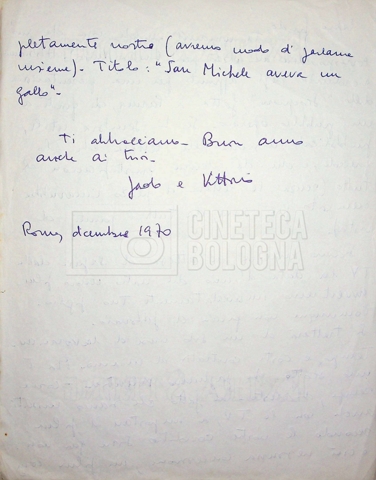 pletamente nostra (avremo modo di parlarne
insieme). Titolo: "San Michele aveva un
gallo".
Ti abbracciamo. Buon anno
anche ai tuoi.
Paolo e Vittorio
Roma, dicembre 1970
CINETECA
BOLOGNA